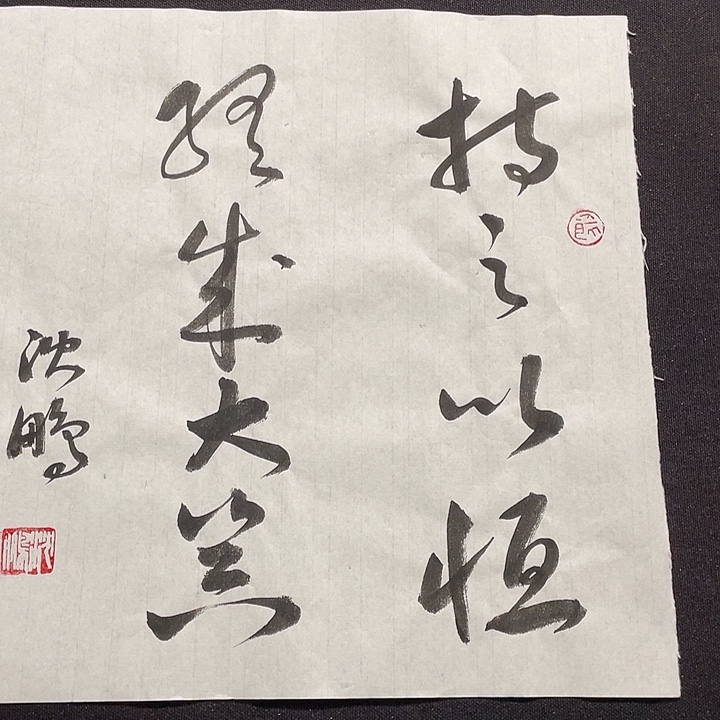 持之以恒
終成大器
沈鵬